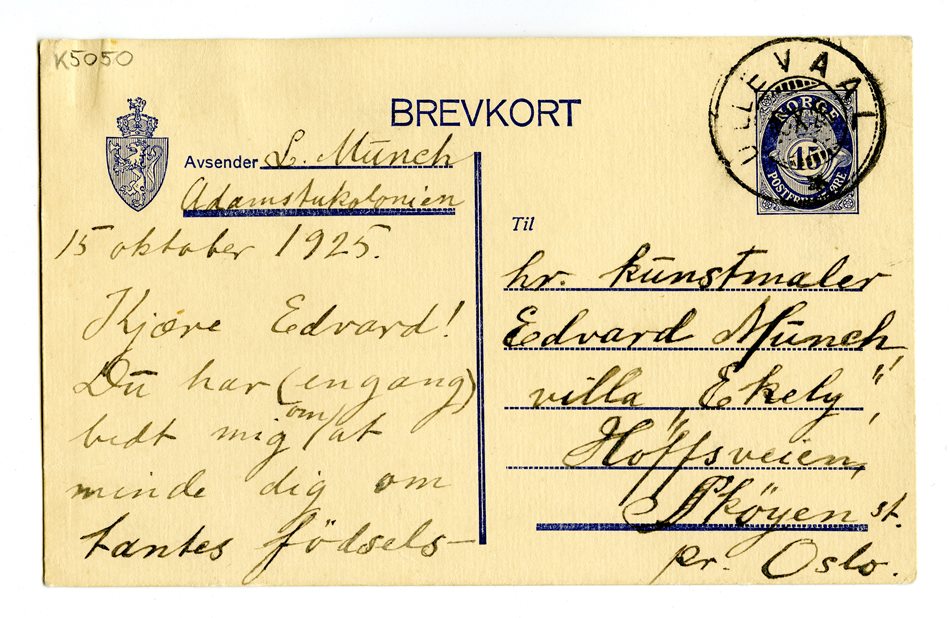 K5050
BREVKORT
Avsender L. Munch
Adamstukolonien
15 oktober 1925.
Kjære Edvard!
Du har (engang)
bedt mig om at
minde dig om
tantes födsels-
ULLEVAAL
NORGE
15
POSTFRIM. ØRE
Til
hr. kunstmaler
Edvard Munch,
villa „Ekely",
Höffsveien,
Sköyen st.
pr. Oslo.